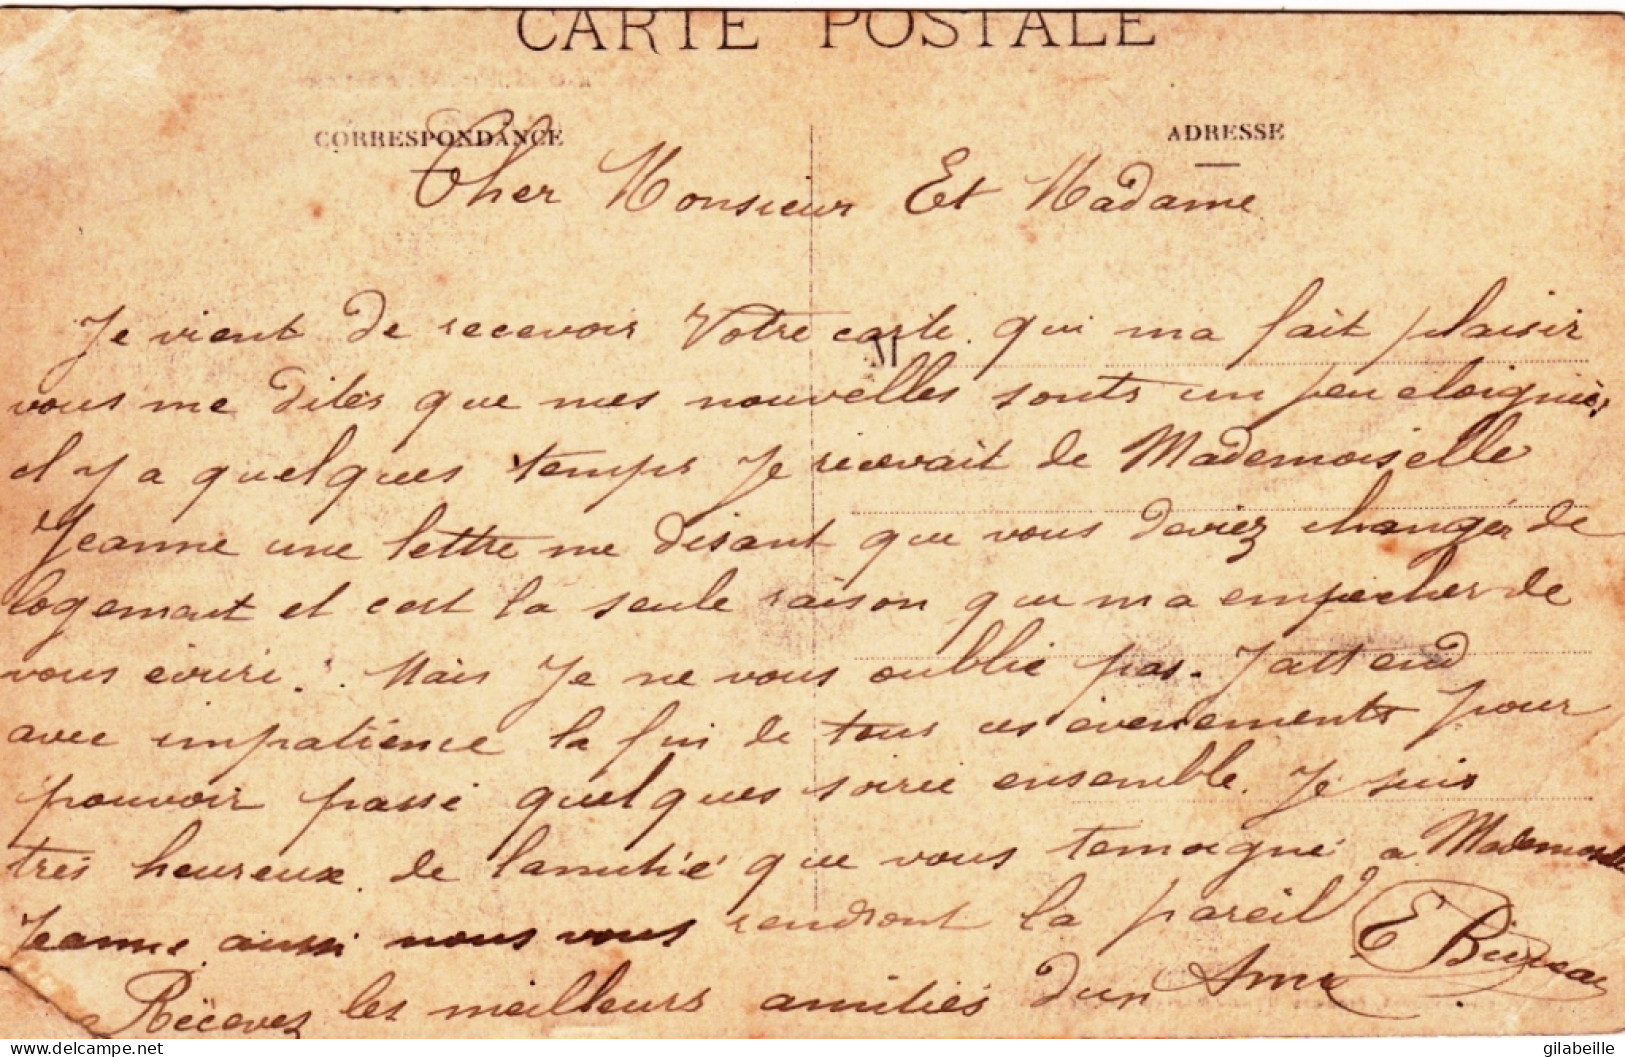 CARTE POSTALE
CORRESPONDANCE
ADRESSE
Cher Monsieur Et Madame
Je vient de recevoir Votre carte qui ma fait plaisir
vous me dites que mes nouvelles sonts un peu eloignées
il y a quelques temps Je recevait de Mademoiselle
Jeanne une lettre me disant que vous deviez changer de
logement et cest la seule raison que ma empecher de
vous ecrire. Mais Je ne vous oublie pas. Jattend
avec impatience la fin de tous ces évenements pour
pouvoir passé quelques soirée ensemble. Je suis
très heureux de lamitié que vous temoigné a Mademoiselle
Jeanne aussi nous vous rendront la pareil
Recevez les meilleurs amitiés dun Ami E
delcampe.net
gilabeille